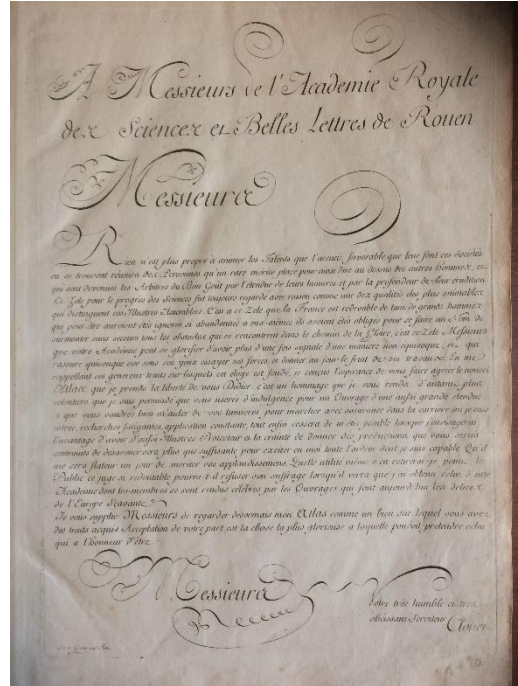 A Messieurs de l'Academie Royale
des Sciences et Belles Lettres de Rouen
Messieurs
Rien n'est plus propre a animer les Talents que l'accueil favorable que leur font ces Societés
ou se trouvent réunies des Personnes qu'un rare mérite place pour ainsi dire au dessus des autres hommes, et
qui sont devenues les Arbitres du Bon Goût par l'étendue de leurs lumieres et par la profondeur de leur érudition
Ce Zele pour le progrès des Sciences fut toujours regardé avec raison comme une des qualités des plus estimables
qui distinguent ces Illustres Assemblées. C'est a ce Zele que la France est redevable de tant de grands hommes
qui peut être auroient étés ignorés si abandonnés a eux mêmes ils avoient étés obligés pour se faire un Nom de
surmonter sans secours tous les obstacles qui se rencontrent dans le chemin de la Gloire, c'est ce Zele Messieurs
que votre Academie peut se glorifier d'avoir plus d'une fois signalé d'une maniere non equivoque, et qui
rassure quiconque ose sous vos yeux essayer ses forces, et donner au jour le fruit de ses travaux. En me
rappellant ces genereux traits sur lesquels cet eloge est fondé, je conçus l'esperance de vous faire agréer le nouvel
Atlas que je prends la liberté de vous Dédier, c'est un hommage que je vous rends d'autant plus
volontiers que je suis persuadé que vous userez d'indulgence pour un Ouvrage d'une aussi grande étendue
et que vous voudrez bien m'aider de vos lumieres, pour marcher avec assurance dans la carriere ou je suis
entré, recherches fatigantes, application constante, tout enfin cessera de m'être penible lorsque j'envisagerai
l'avantage d'avoir d'aussi Illustres Protecteurs et la crainte de donner des productions que vous seriez
contraints de desavouer sera plus que suffisante pour exciter en moi toute l'ardeur dont je suis capable Qu'il
me sera flateur un jour de meriter vos applaudissemens Quelle utilité même n'en retirerai-je point, le
Public ce juge si redoutable pourra t-il refuser son suffrage lorsqu'il verra que j'ai obtenu celui d'une
Academie dont les membres se sont rendus célébres par les Ouvrages qui font aujourd'hui les delices
de l'Europe Sçavante
Je vous supplie Messieurs de regarder desormais mon Atlas comme un bien sur lequel vous avez
des droits acquis Acceptation de votre part est la chose la plus glorieuse a laquelle pouvoit pretendre celui
qui a l'honneur d'être
Messieurs
Votre très humble et très
obéissant Serviteur Clouet